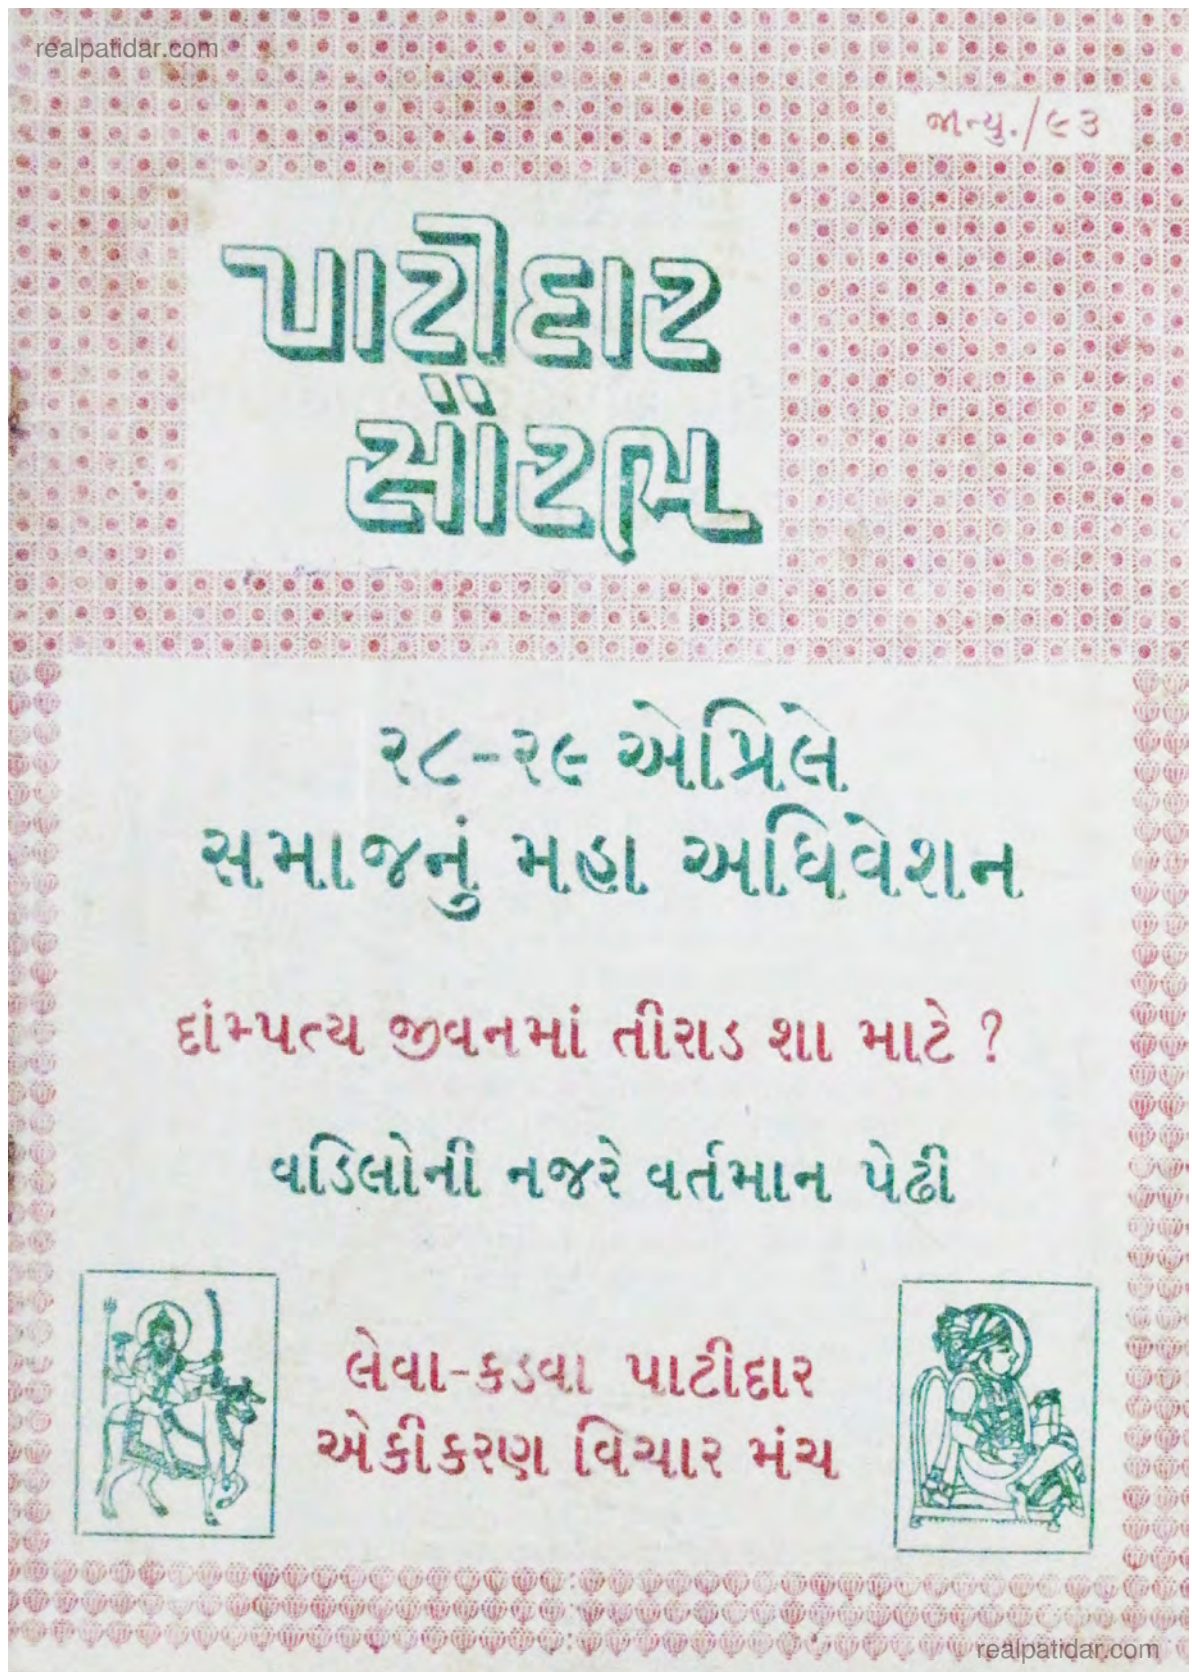 realpatidar.com
જાન્યુ./૯૩
પાટીદાર
સૌરભ
૨૮-૨૯ એપ્રિલે
સમાજનું મહા અધિવેશન
દાંમ્પત્ય જીવનમાં તીરાડ શા માટે ?
વડિલોની નજરે વર્તમાન પેઢી
લેવા-કડવા પાટીદાર
એકીકરણ વિચાર મંચ
realpatidar.com